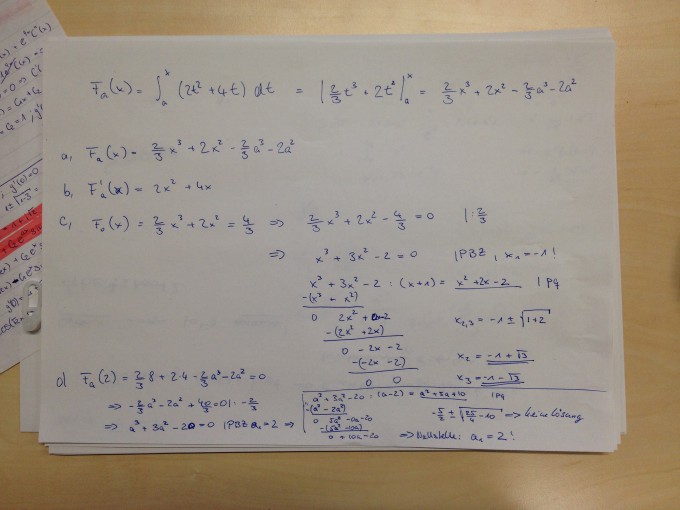 F_a(x) = ∫_a^x (2t² + 4t) dt = | 2/3 t³ + 2t² |_a^x = 2/3 x³ + 2x² - 2/3 a³ - 2a²
a, F_a(x) = 2/3 x³ + 2x² - 2/3 a³ - 2a²
b, F_a'(x) = 2x² + 4x
c, F_0(x) = 2/3 x³ + 2x² = 4/3 ⇒ 2/3 x³ + 2x² - 4/3 = 0 | : 2/3
⇒ x³ + 3x² - 2 = 0 | PBZ, x₁ = -1!
x³ + 3x² - 2 : (x+1) = x² + 2x - 2 | pq
-(x³ + x²)
0 2x² + 0 - 2
-(2x² + 2x)
0 - 2x - 2
-(-2x - 2)
0 0
x_2,3 = -1 ± √1+2
x₂ = -1 + √3
x₃ = -1 - √3
d) F_a(2) = 2/3 8 + 2·4 - 2/3 a³ - 2a² = 0
⇒ -2/3 a³ - 2a² + 40/3 = 0 | : -2/3
⇒ a³ + 3a² - 20 = 0 | PBZ a₁ = 2 ⇒
a³ + 3a² - 20 : (a-2) = a² + 5a + 10 | pq
-(a³ - 2a²)
0 5a² - 0a - 20
-(5a² - 10a)
0 + 10a - 20
-5/2 ± √25/4 - 10 ⇒ keine Lösung
⇒ Nullstelle: a₁ = 2!